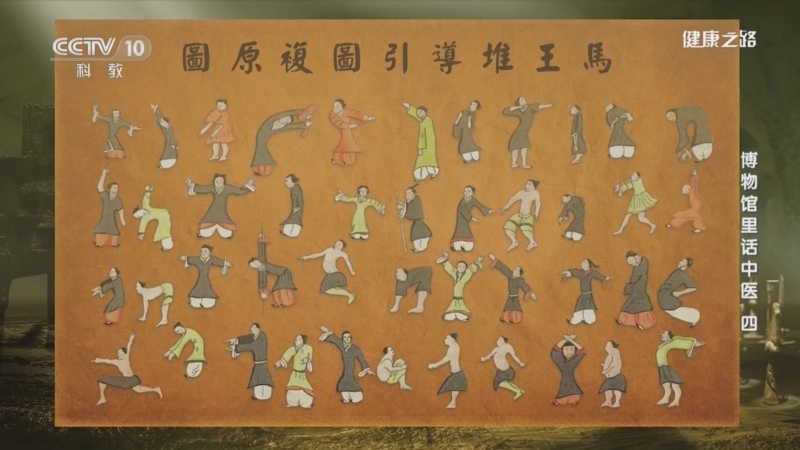 CCTV 10
科教
健康之路
圖原複圖引導堆王馬
博物馆里话中医 四